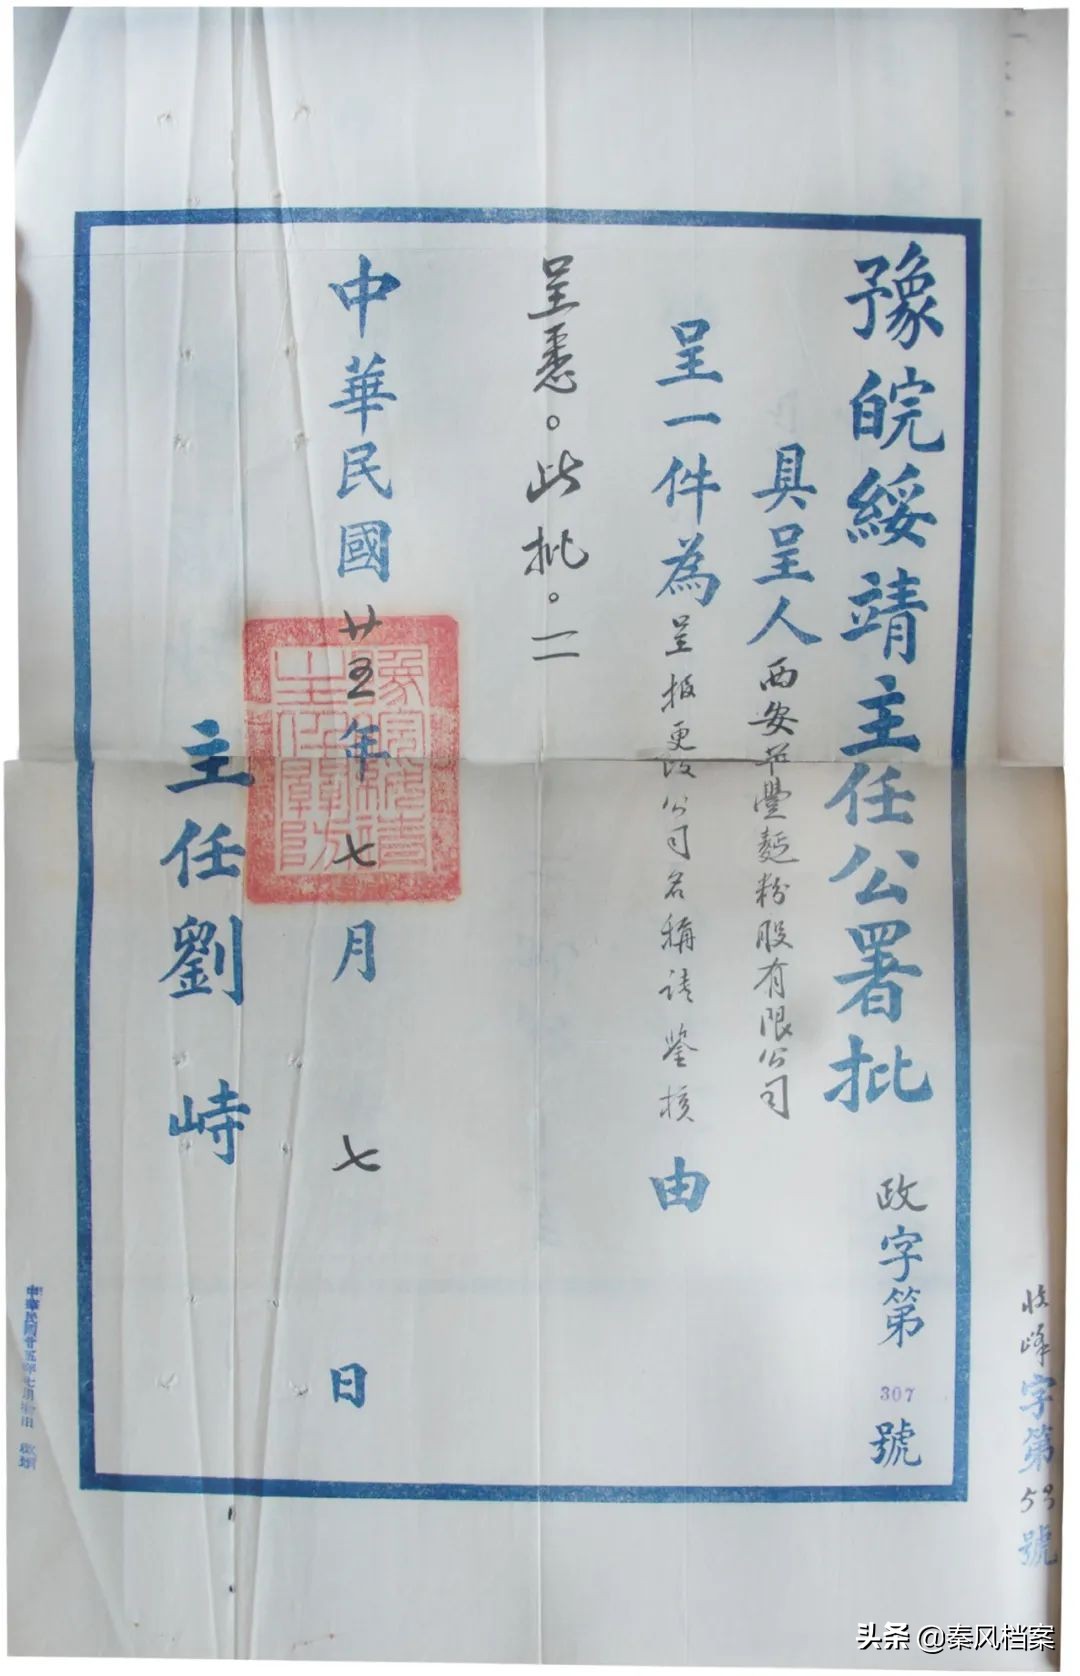 豫皖綏靖主任公署批 政字第307號
具呈人西安華豐麵粉股有限公司
呈一件為呈报更改公司名稱请鉴核由
呈悉。此批。
中華民國廿五年七月七日
主任劉峙
豫皖綏靖
主任關防
字第59號
中華民國廿五年七月
头条 @秦风档案